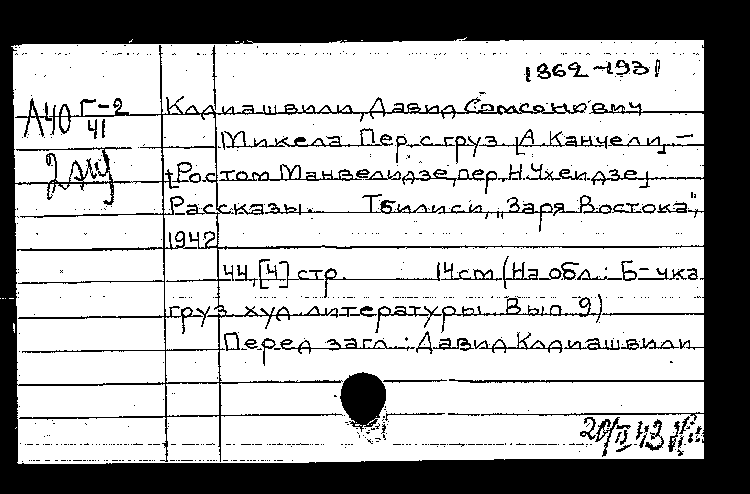 1862-1931
Л40 Г-2
41
2 экз
Клдиашвили, Давид Самсонович
Микела. Пер. с груз. [А. Канчели]. –
[Ростом Манвелидзе, пер. Н. Чхеидзе]
Рассказы. Тбилиси, „Заря Востока",
1942
44, [4] стр. 14 см (На обл.: Б-чка
груз. худ. литературы. Вып. 9)
Перед загл.: Давид Клдиашвили
20/II 43